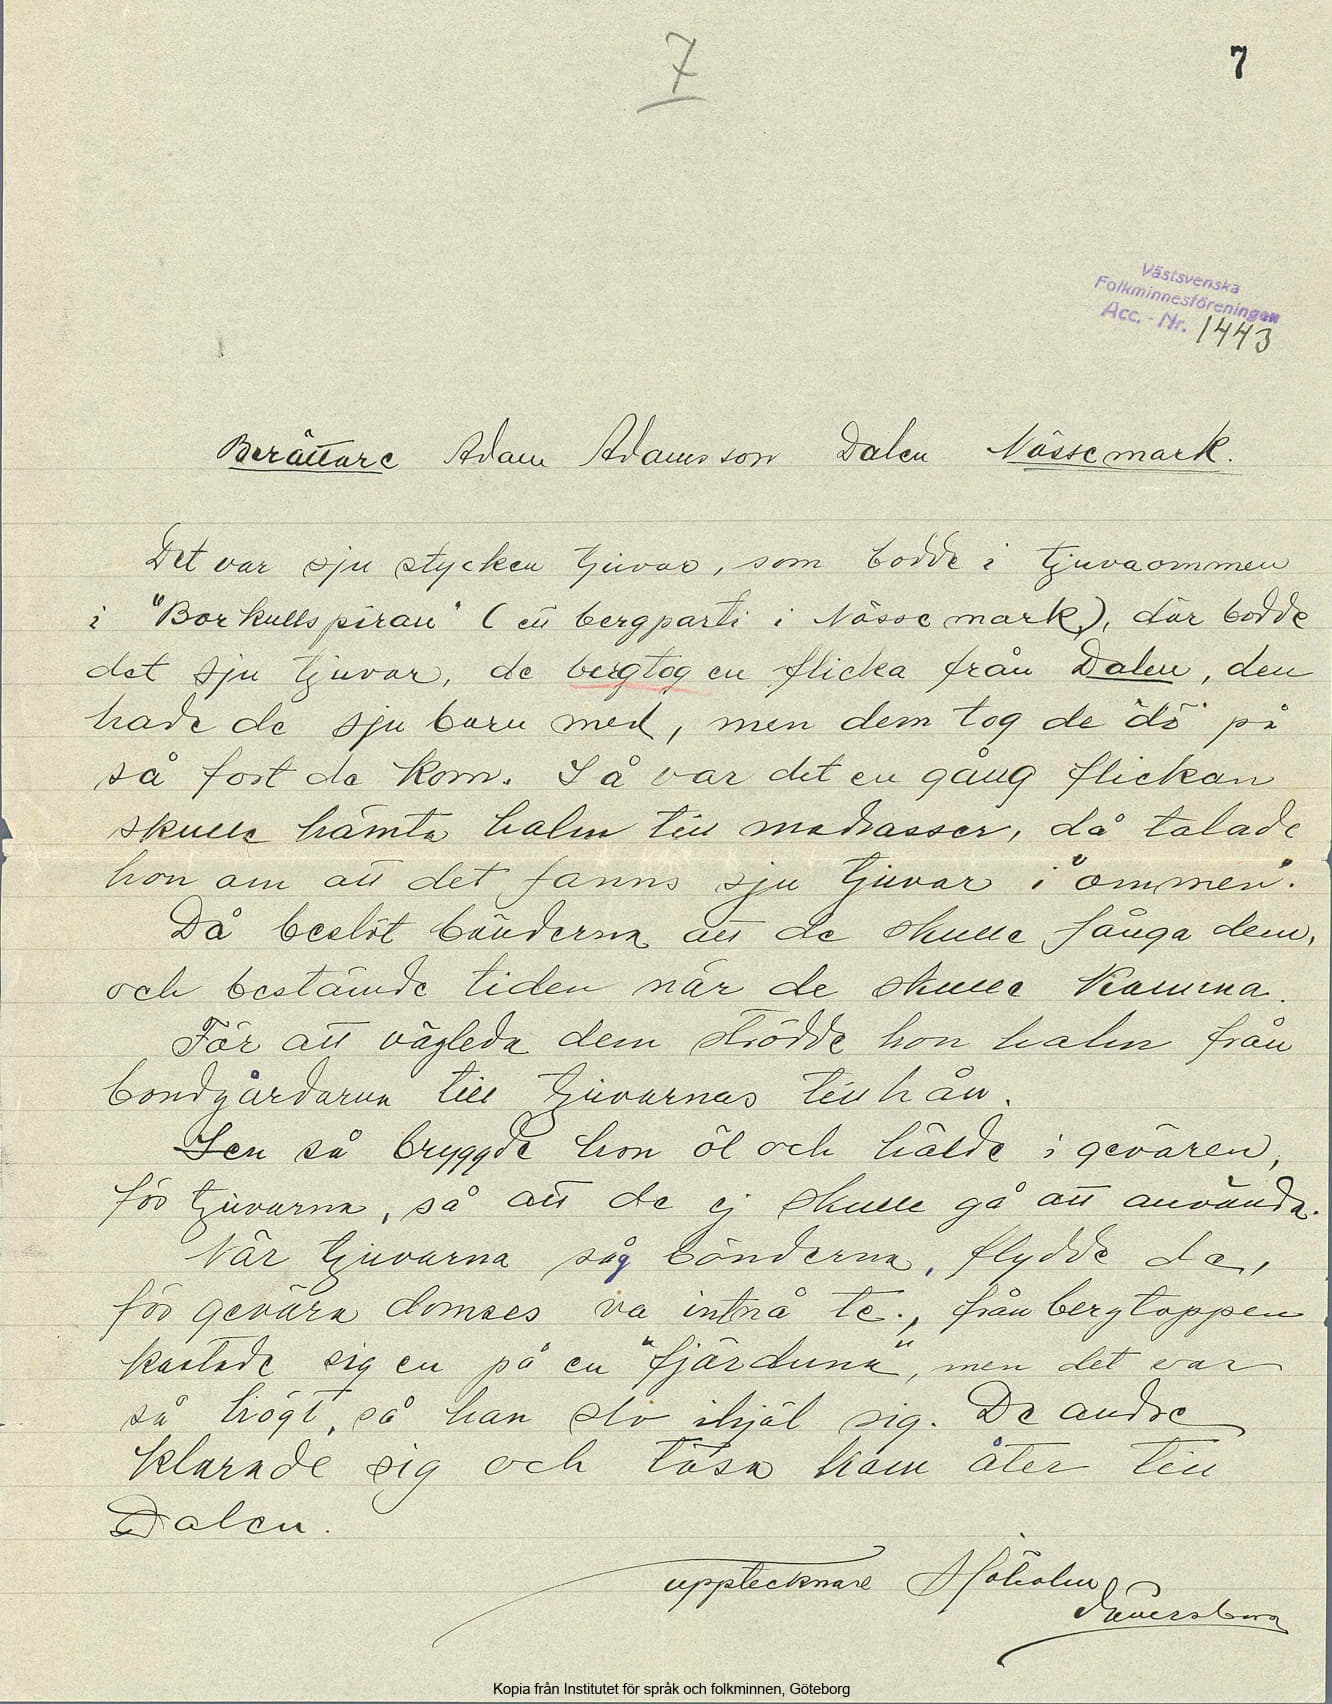 7
7
Västsvenska
Folkminnesföreningen
Acc. - Nr. 1443
Berättare Adam Adamsson Dalen Nössemark.
Det var sju stycken tjuvar, som bodde i tjuvaommen
i "Borkullspiran" (ett bergparti i Nössemark), där bodde
det sju tjuvar, de bergtog en flicka från Dalen, den
hade de sju barn med, men dem tog de "dö" på
så fort de kom. Så var det en gång flickan
skulle hämta halm till madrasser, då talade
hon om att det fanns sju tjuvar i "ommen".
Då beslöt bönderna att de skulle fånga dem,
och bestämde tiden när de skulle komma.
För att vägleda dem strödde hon halm från
bondgårdarna till tjuvarnas tillhåll.
Sen så bryggde hon öl och hälde i gevären,
för tjuvarna, så att de ej skulle gå att använda.
När tjuvarna såg bönderna, flydde de,
för gevära domses va intnå te., från bergtoppen
kastade sig en på en "fjärduna", men det var
så högt, så han slo ihjäl sig. De andre
klarade sig och tösa kom åter till
Dalen.
upptecknare
Kopia från Institutet för språk och folkminnen, Göteborg